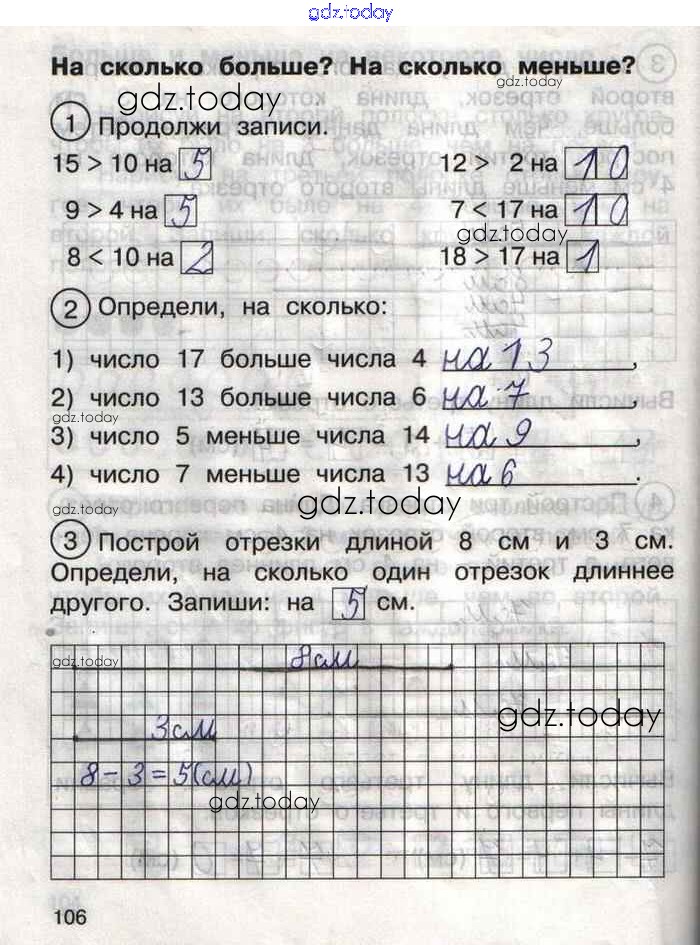 gdz.today
На сколько больше? На сколько меньше?
gdz.today
1 Продолжи записи.
15 > 10 на 5 12 > 2 на 10
9 > 4 на 5 7 < 17 на 10
gdz.today
8 < 10 на 2 18 > 17 на 1
2 Определи, на сколько:
1) число 17 больше числа 4 на 13,
2) число 13 больше числа 6 на 7,
gdz.today
3) число 5 меньше числа 14 на 9,
4) число 7 меньше числа 13 на 6.
gdz.today gdz.today
3 Построй отрезки длиной 8 см и 3 см.
Определи, на сколько один отрезок длиннее
другого. Запиши: на 5 см.
gdz.today 8 см
gdz.today
3 см
8 - 3 = 5 (см)
gdz.today
106